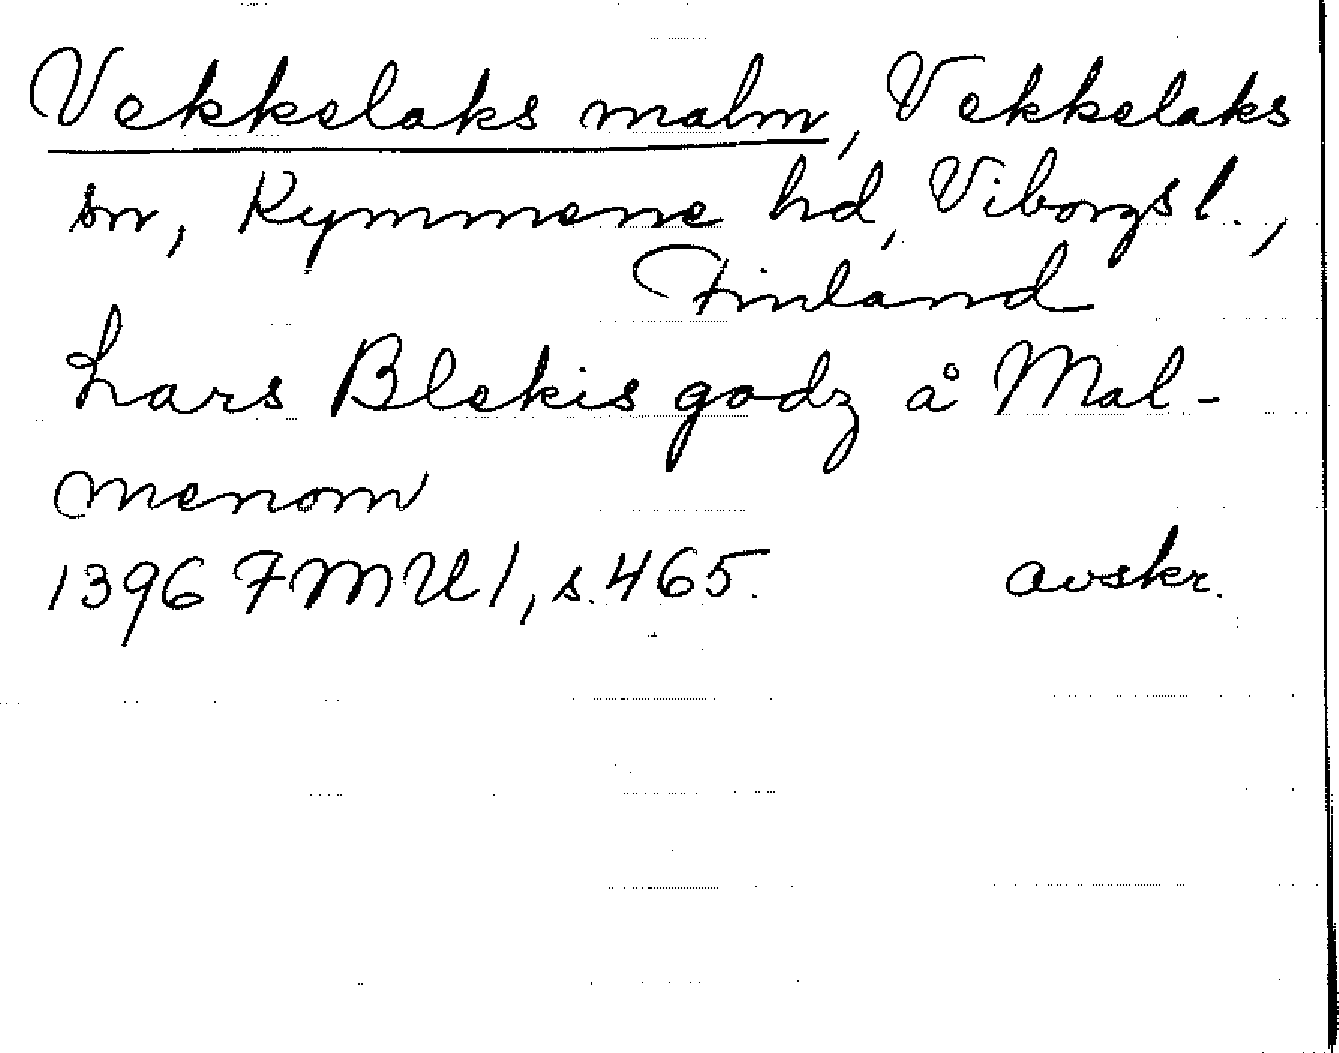 Vekkelaks malm, Vekkelaks
sn, Kymmene hd, Viborgs l.,
Finland
Lars Blekis godz å Mal-
menom
1396 FMU 1, s. 465. avskr.